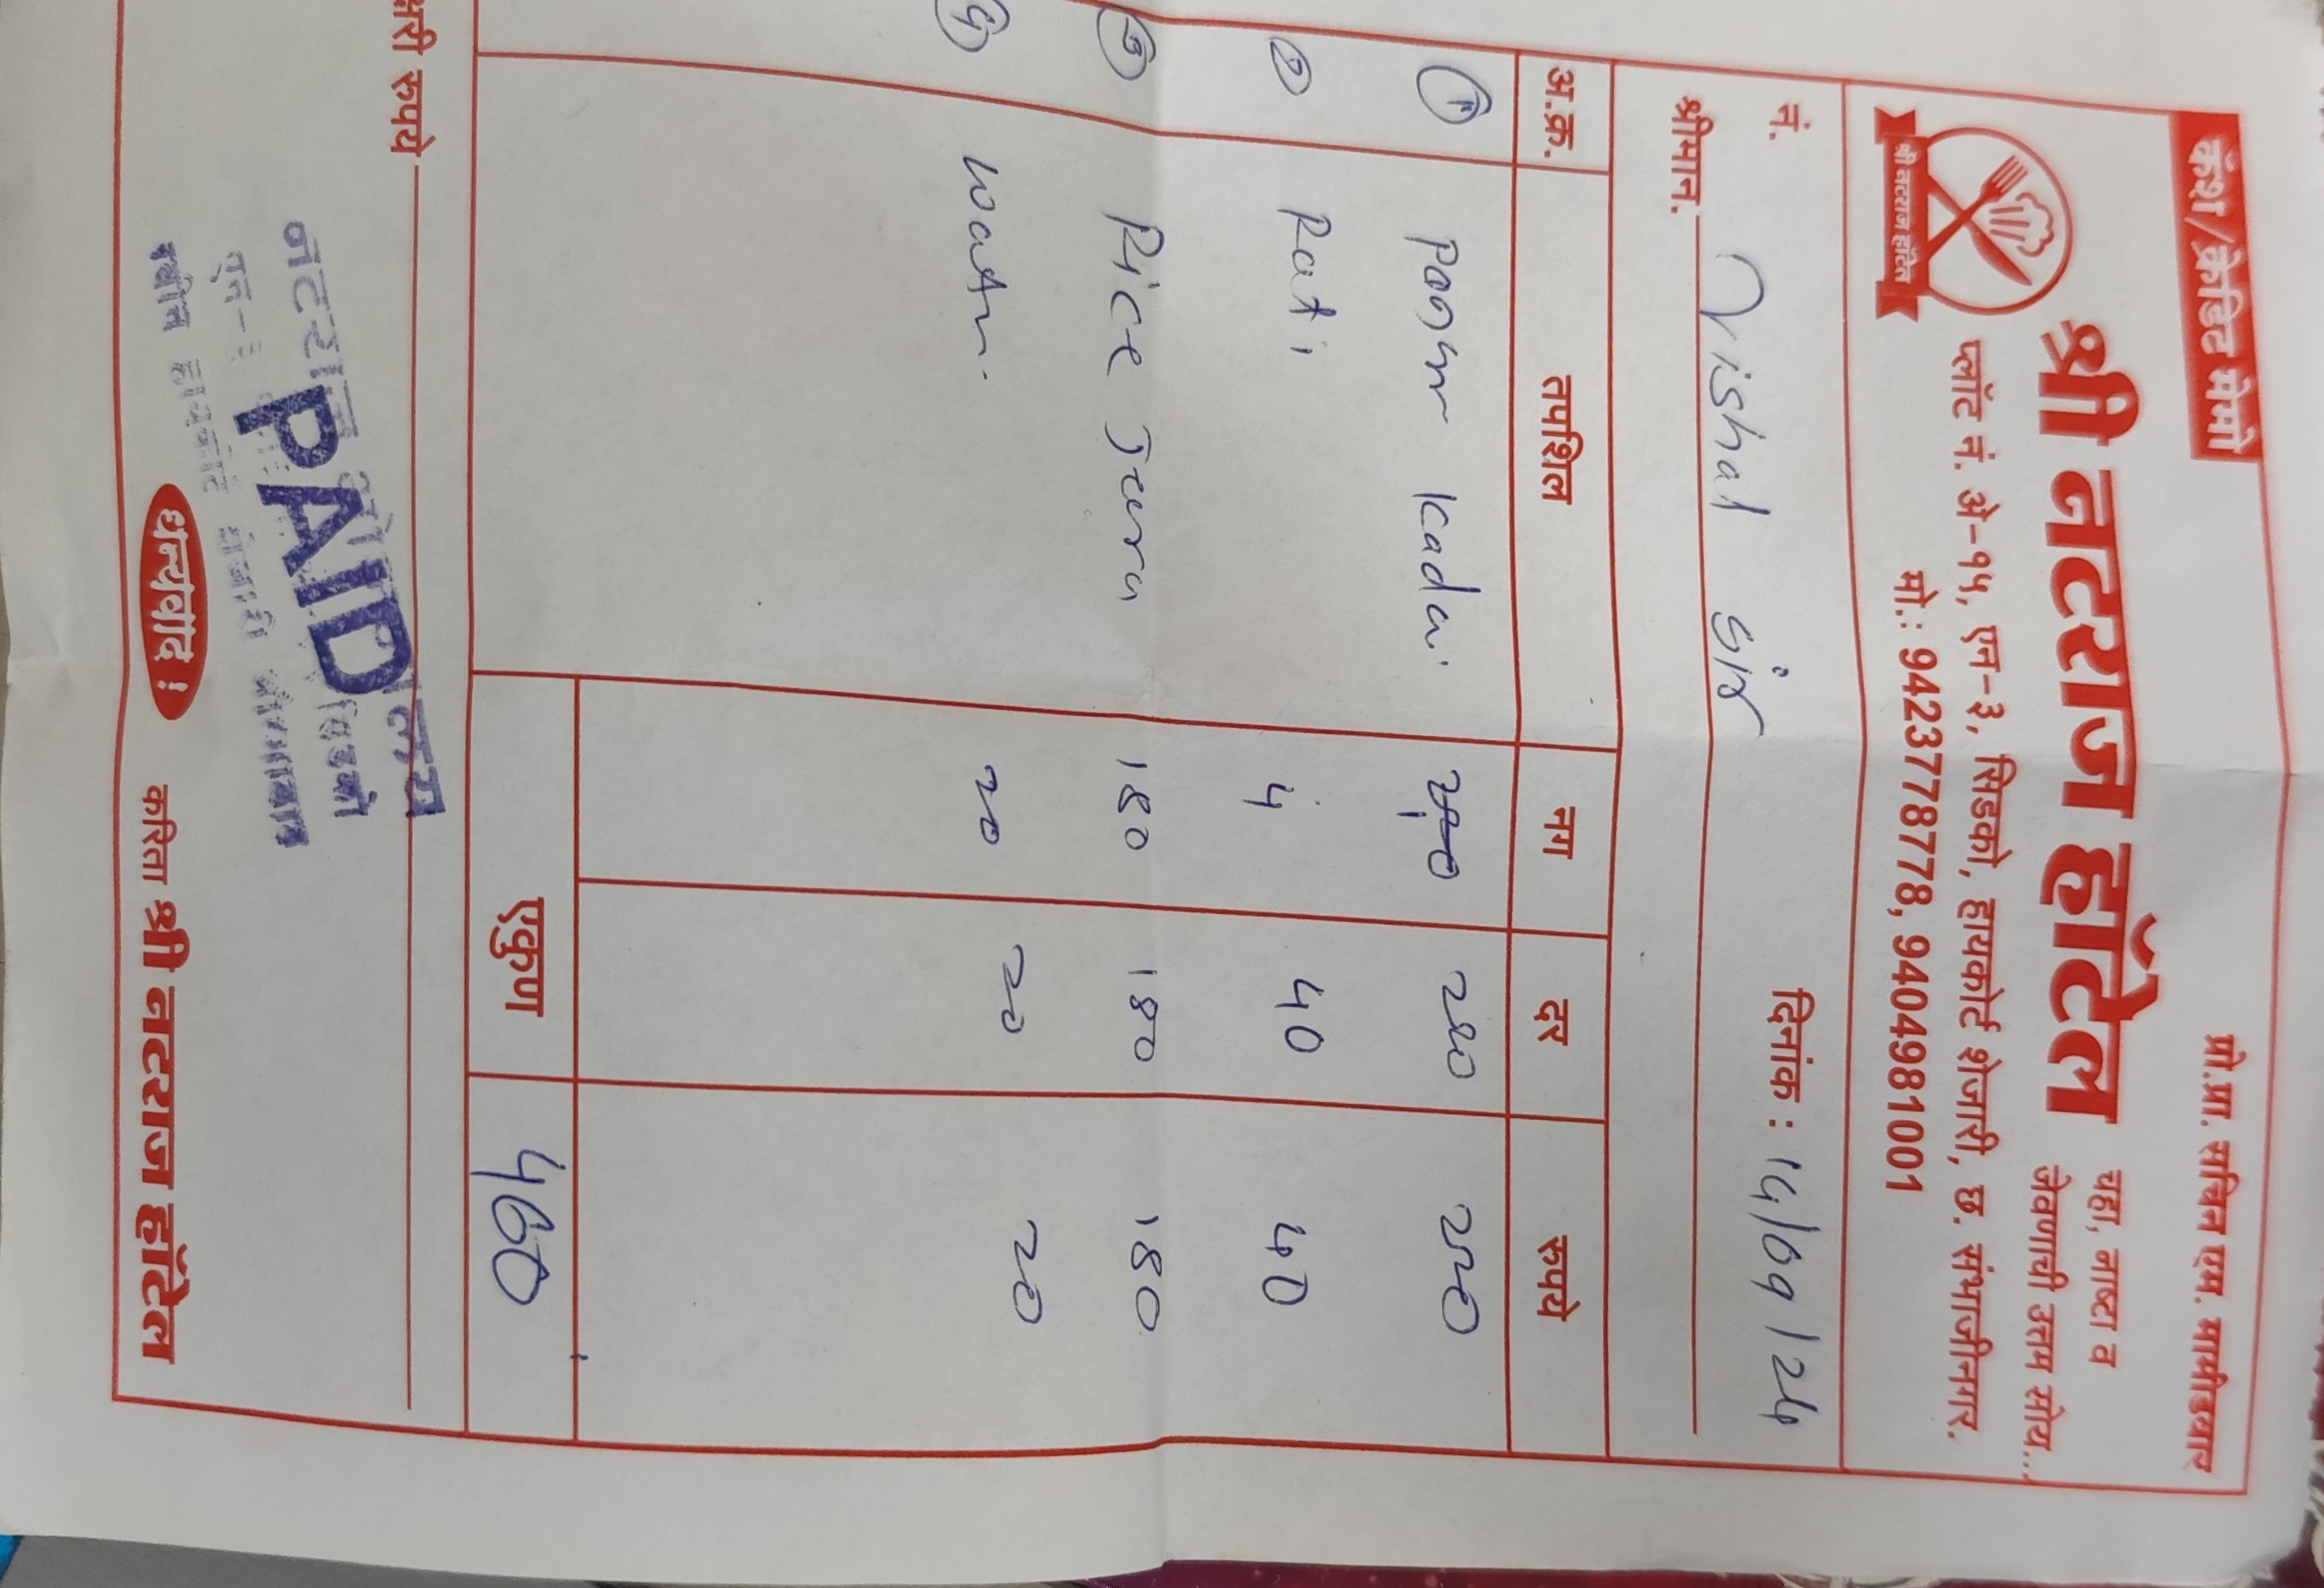 कॅश/क्रेडिट मेमो
प्रो.प्रा. सचिन एम. मामीडवार
श्री नटराज हॉटेल
चहा, नाष्टा व
जेवणाची उत्तम सोय...
श्री नटराज हॉटेल
प्लॉट नं. अे-१५, एन-३, सिडको, हायकोर्ट शेजारी, छ. संभाजीनगर.
मो.: 9423778778, 9404981001
नं. दिनांक : 14/09/24
श्रीमान. Vishal sir
अ.क्र. तपशिल नग दर रुपये
1 Kadai 220 220
2 Roti 4 40 40
3 Rice 180 180 180
4 20 20 20
एकुण 460
क्षरी रुपये
नटराज
PAID
सिडको
हायकोर्ट शेजारी
धन्यवाद !
करिता श्री नटराज हॉटेल